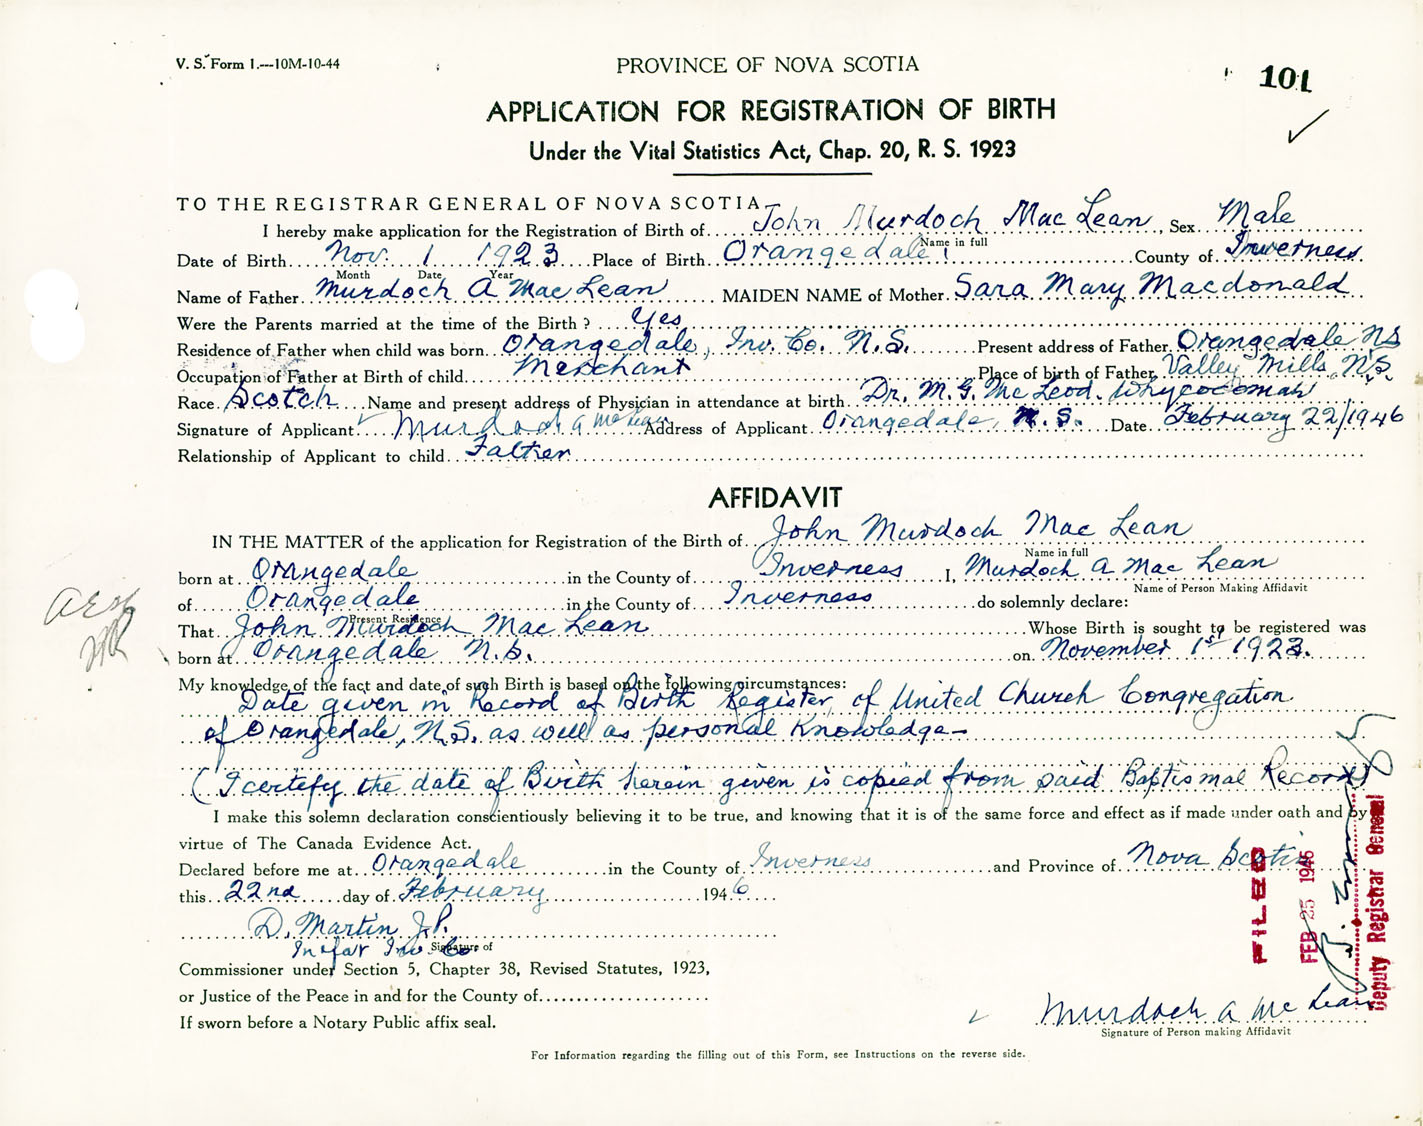 V. S. Form 1.---10M-10-44
PROVINCE OF NOVA SCOTIA
101
APPLICATION FOR REGISTRATION OF BIRTH
Under the Vital Statistics Act, Chap. 20, R. S. 1923
TO THE REGISTRAR GENERAL OF NOVA SCOTIA
I hereby make application for the Registration of Birth of John Murdoch Mac Lean, Sex Male
Name in full
Date of Birth Nov. 1 1923 Place of Birth Orangedale County of Inverness
Month Date Year
Name of Father Murdoch A Mac Lean MAIDEN NAME of Mother Sara Mary Macdonald
Were the Parents married at the time of the Birth ? Yes
Residence of Father when child was born Orangedale, Inv. Co. N.S. Present address of Father Orangedale NS
Occupation of Father at Birth of child Merchant Place of birth of Father Valley Mills, N.S.
Race Scotch Name and present address of Physician in attendance at birth Dr. M. G. Mc Leod. Whycocomah
Signature of Applicant Murdoch A Mc Lean Address of Applicant Orangedale, N.S. Date February 22/1946
Relationship of Applicant to child Father
AFFIDAVIT
IN THE MATTER of the application for Registration of the Birth of John Murdoch Mac Lean
Name in full
born at Orangedale in the County of Inverness I, Murdoch A Mac Lean
Name of Person Making Affidavit
of Orangedale in the County of Inverness do solemnly declare:
Present Residence
That John Murdoch Mac Lean Whose Birth is sought to be registered was
born at Orangedale N.S. on November 1st 1923.
My knowledge of the fact and date of such Birth is based on the following circumstances:
Date given in Record of Birth Register, of United Church Congregation
of Orangedale, N.S. as well as personal Knowledge-
(I certify the date of Birth herein given is copied from said Baptismal Record)
I make this solemn declaration conscientiously believing it to be true, and knowing that it is of the same force and effect as if made under oath and by
virtue of The Canada Evidence Act.
Declared before me at Orangedale in the County of Inverness and Province of Nova Scotia
this 22nd day of February 1946
D. Martin J.P.
In & for Inv. Co
Signature of
Commissioner under Section 5, Chapter 38, Revised Statutes, 1923,
or Justice of the Peace in and for the County of
If sworn before a Notary Public affix seal.
FILED
FEB 25 1946
Deputy Registrar General
Murdoch A Mc Lean
Signature of Person making Affidavit
For Information regarding the filling out of this Form, see Instructions on the reverse side.